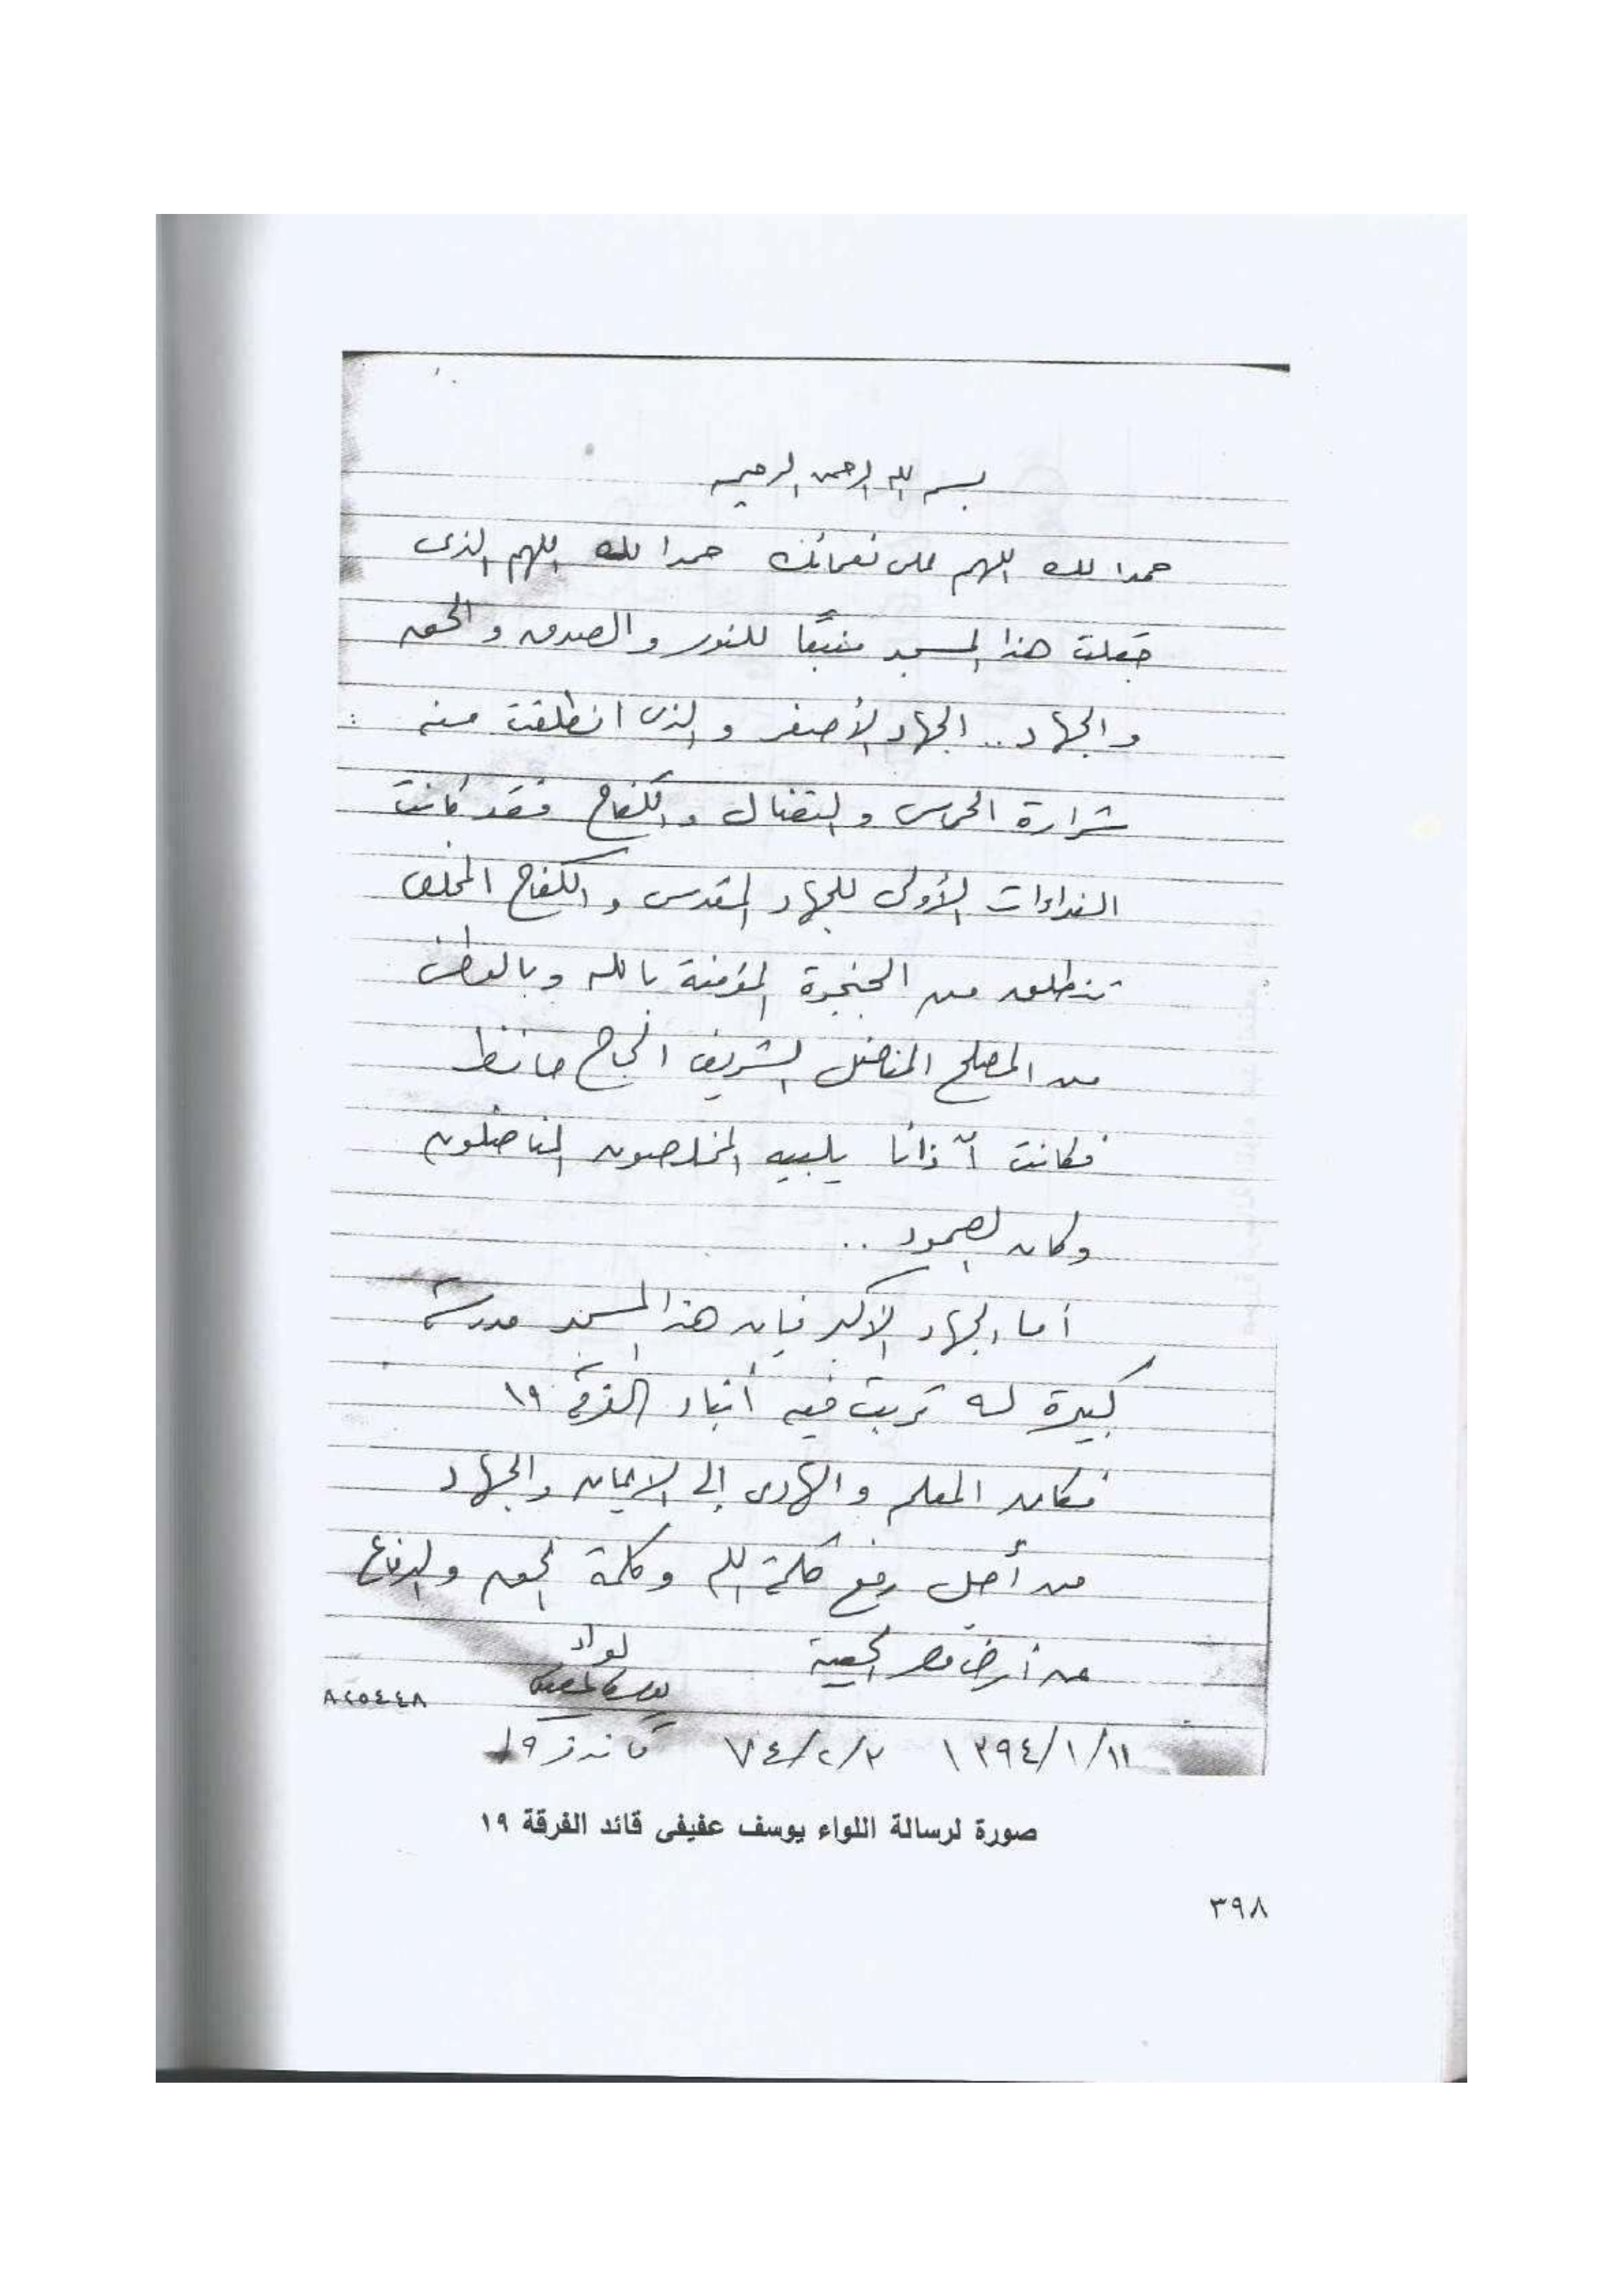 بسم الله الرحمن الرحيم
حمدا لله اللهم على نعمائك حمدا لله اللهم الذى
جعلت هذا المسجد منبعًا للنور والصدق والحق
والجهاد .. الجهاد الأصغر والذى انطلقت منه
شرارة الحماس والنضال والكفاح فقد كانت
النداءات الأولى للجهاد المقدس والكفاح
تنطلق من الحنجرة المؤمنة بالله وبالوطن
من المصلح المناضل الشريف الحاج حافظ
فكانت آذانا يلبيه المخلصون المناضلون
وكان الصمود ..
أما الجهاد الأكبر فإن هذا المسجد مدرسة
كبيرة له تربت فيه الفرقة ١٩
فكان المعلم والهادى إلى الإيمان والجهاد
من أجل رفع كلمة الله وكلمة الحق والدفاع
عن أرض مصر الحبيبة
لواء
٨٢٥٤٤٨
١٣٩٤/١/١١ ٧٤/٢/٣ قائد ف ١٩
صورة لرسالة اللواء يوسف عفيفى قائد الفرقة ١٩
٣٩٨